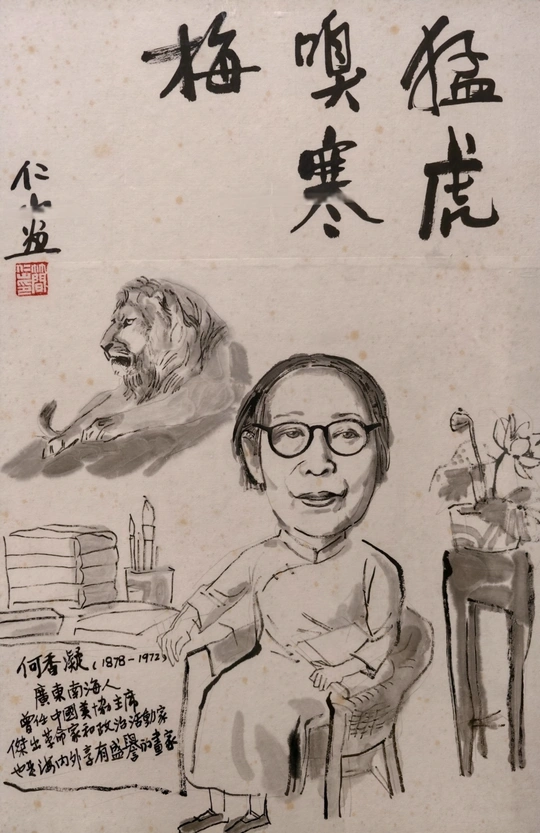 猛虎
嗅寒
梅
仁
何香凝(1878-1972)
廣東南海人
曾任中國美協主席
傑出革命家和政治活動家
也是海内外享有盛譽的畫家